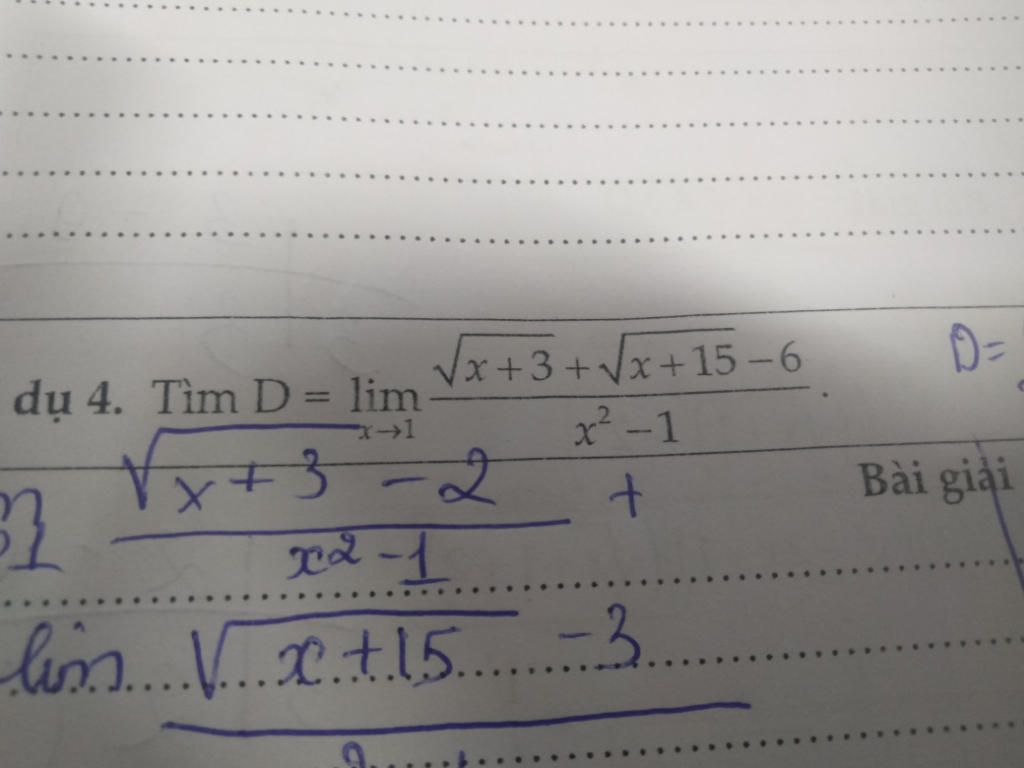 dụ 4. Tìm D = lim x→1 (√(x+3) + √(x+15) − 6) / (x² − 1) .
D =
Bài giải
(√(x+3) − 2) / (x² − 1) +
lim (√(x+15) − 3) /